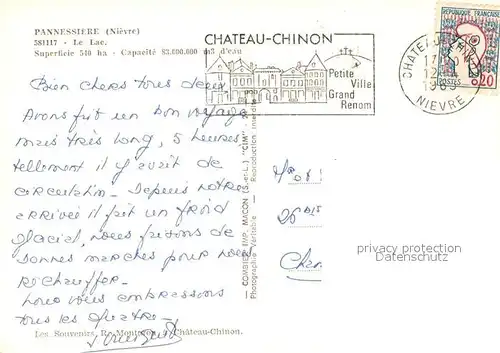 PANNESSIÈRE (Nièvre)
581117 - Le Lac.
Superficie 540 ha - Capacité 83.600.000 m3 d'eau
CHATEAU-CHINON
Petite
Ville
Grand
Renom
RÉPUBLIQUE FRANÇAISE
0,20
POSTES
CHATEAU-CHINON
17
12
196
NIEVRE
Bien chers tous deux
Avons fait un bon voyage
mais très long, 5 heures
tellement il y avait de
circulation - Depuis notre
arrivée il fait un froid
glacial, nous faisons de
bonnes marches pour nous
rechauffer -
Nous vous embrassons
tous les quatre -
COMBIER IMP. MACON (S.-et-L.) "CIM"
Photographie Véritable - Reproduction interdite
26 bis
privacy protection
Datenschutz
Les Souvenirs, R. Château-Chinon.